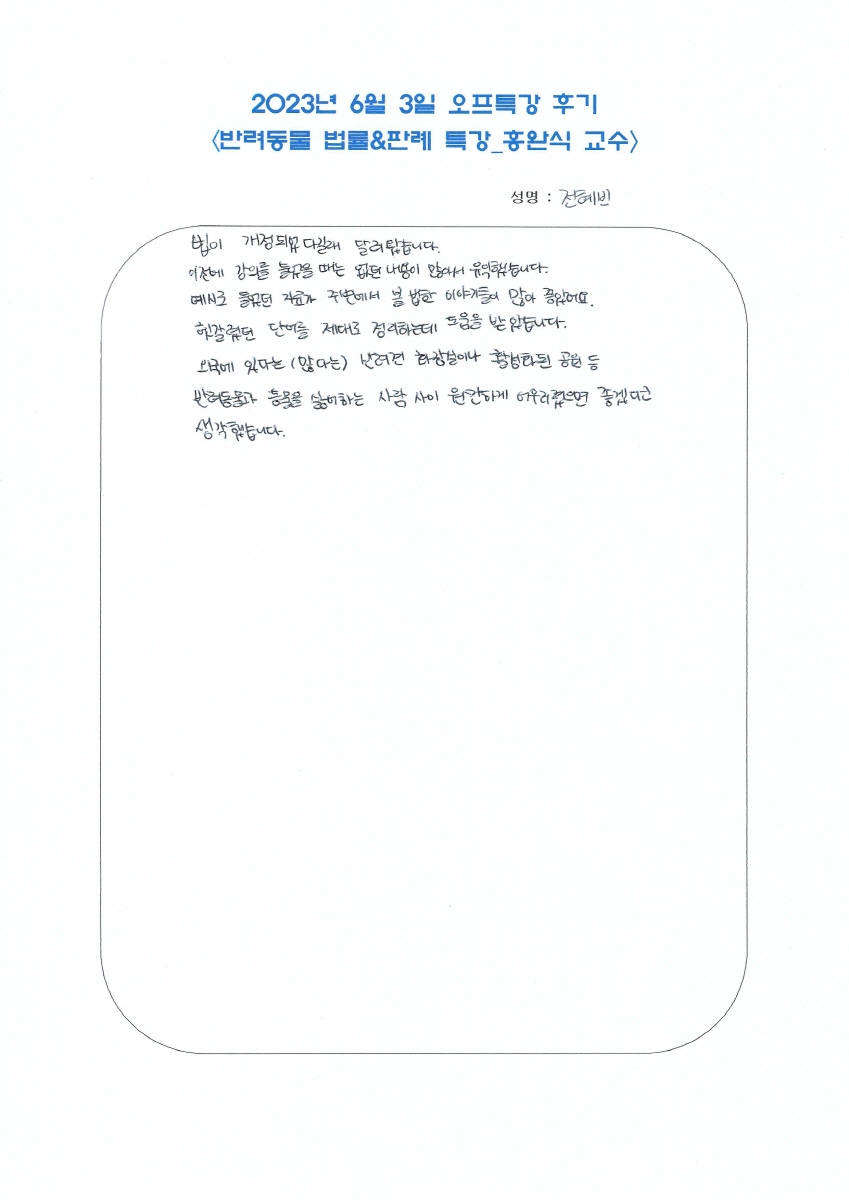 2023년 6월 3일 오프특강 후기
<반려동물 법률&판례 특강_홍완식 교수>
성명 : 전혜빈
법이 개정되었다길래 달려왔습니다.
이전에 강의를 들었을 때는 없던 내용이 많아서 유익했습니다.
예시로 들었던 자료가 주변에서 볼 법한 이야기들이 많아 좋았어요.
헷갈렸던 단어를 제대로 정리하는데 도움을 받았습니다.
외국에 있다는 (많다는) 반려견 화장실이나 활성화된 공원 등
반려동물과 동물을 싫어하는 사람 사이 원만하게 어우러졌으면 좋겠다고
생각했습니다.